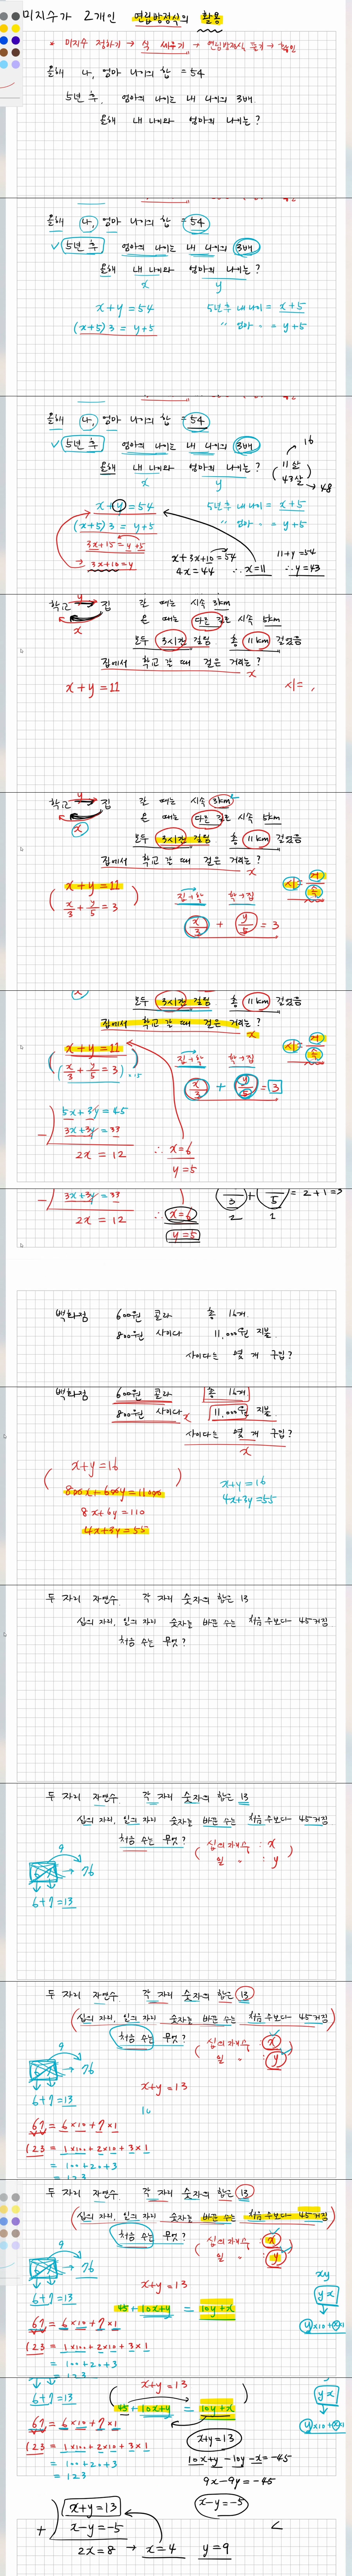 미지수가 2개인 연립방정식의 활용
* 미지수 정하기 → 식 세우기 → 연립방정식 풀기 → 확인
올해 나, 엄마 나이의 합 = 54
5년 후, 엄마의 나이는 내 나이의 3배
올해 내 나이와 엄마의 나이는?
올해 나, 엄마 나이의 합 = 54
✓ 5년 후 엄마의 나이는 내 나이의 3배
올해 내 나이와 엄마의 나이는?
x y
x+y=54 5년후 내 나이 = x+5
(x+5)3 = y+5 〃 엄마 〃 = y+5
올해 나, 엄마 나이의 합 = 54
16
✓ 5년 후 엄마의 나이는 내 나이의 3배
올해 내 나이와 엄마의 나이는?
(11살
43살) → 48
x y
x+y=54 5년후 내 나이 = x+5
(x+5)3 = y+5 〃 엄마 〃 = y+5
3x+15=y+5
→ 3x+10=y
x+3x+10=54
4x=44 ∴ x=11
11+y=54
∴ y=43
학교 y 집 갈 때는 시속 3km
x 올 때는 다른 길로 시속 5km
모두 3시간 걸림 총 11km 걸었음
집에서 학교 갈 때 걸은 거리는?
x
x+y=11 시=
학교 y 집 갈 때는 시속 3km
x 올 때는 다른 길로 시속 5km
모두 3시간 걸림 총 11km 걸었음
집에서 학교 갈 때 걸은 거리는?
x
x+y=11 집→학 학→집 시=거/속
x/3+y/5=3 x/3 + y/5 = 3
모두 3시간 걸림 총 11km 걸었음
집에서 학교 갈 때 걸은 거리는?
x
x+y=11 집→학 학→집 시=거/속
x/3+y/5=3 x/3 + y/5 = 3
5x+3y=45
- 3x+3y=33
2x=12 ∴ x=6
y=5
- 3x+3y=33
2x=12 ∴ x=6
y=5
3 + 5 = 2+1=3
2 1
백화점 600원 콜라 총 16개
800원 사이다 11,000원 지불
사이다는 몇 개 구입?
백화점 600원 콜라 총 16개
800원 사이다 x 11,000원 지불
사이다는 몇 개 구입?
x
x+y=16
800x+600y=11000
8x+6y=110
4x+3y=55
x+y=16
4x+3y=55
두 자리 자연수. 각 자리 숫자의 합은 13
십의 자리, 일의 자리 숫자를 바꾼 수는 처음 수보다 45커짐
처음 수는 무엇?
두 자리 자연수 각 자리 숫자의 합은 13
십의 자리, 일의 자리 숫자를 바꾼 수는 처음 수보다 45커짐
처음 수는 무엇? (십의 자리수 : x
일 〃 : y)
9
→ 76
6+7=13
두 자리 자연수 각 자리 숫자의 합은 13
(십의 자리, 일의 자리 숫자를 바꾼 수는 처음 수보다 45커짐)
처음 수는 무엇? (십의 자리수 : x
일 〃 : y)
9
→ 76
6+7=13
x+y=13
10
67 = 6×10+7×1
123 = 1×100+2×10+3×1
= 100+20+3
= 123
두 자리 자연수 각 자리 숫자의 합은 13
(십의 자리, 일의 자리 숫자를 바꾼 수는 처음 수보다 45커짐)
처음 수는 무엇? (십의 자리수 : x
일 〃 : y)
9
→ 76
6+7=13
x+y=13
45+10x+y = 10y+x
xy
yx
y×10+x×1
67 = 6×10+7×1
123 = 1×100+2×10+3×1
= 100+20+3
= 123
6+7=13
x+y=13
45+10x+y = 10y+x
yx
y×10+x×1
67 = 6×10+7×1
123 = 1×100+2×10+3×1
= 100+20+3
= 123
x+y=13
10x+y-10y-x=-45
9x-9y=-45
x-y=-5
x+y=13
+ x-y=-5
2x=8 → x=4 y=9